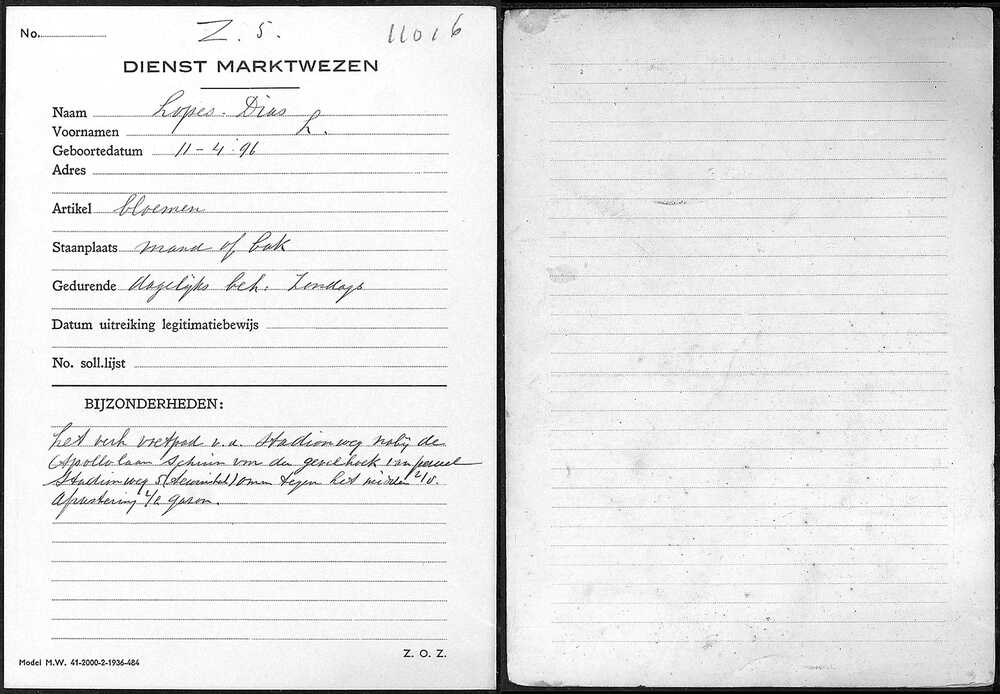 No.
Z. 5.
11016
DIENST MARKTWEZEN
Naam Lopes-Dias
Voornamen L.
Geboortedatum 11-4-96
Adres
Artikel bloemen
Staanplaats mand of bak
Gedurende dagelijks beh. Zondags
Datum uitreiking legitimatiebewijs
No. soll.lijst
BIJZONDERHEDEN:
het verh voetpad v.d. Stadionweg nabij de
Apollolaan schuin voor den gevelhoek van perceel
Stadionweg 5 tegen het midden v/d.
afrastering v/h gazon.
Model M.W. 41-2000-2-1936-484
Z. O. Z.